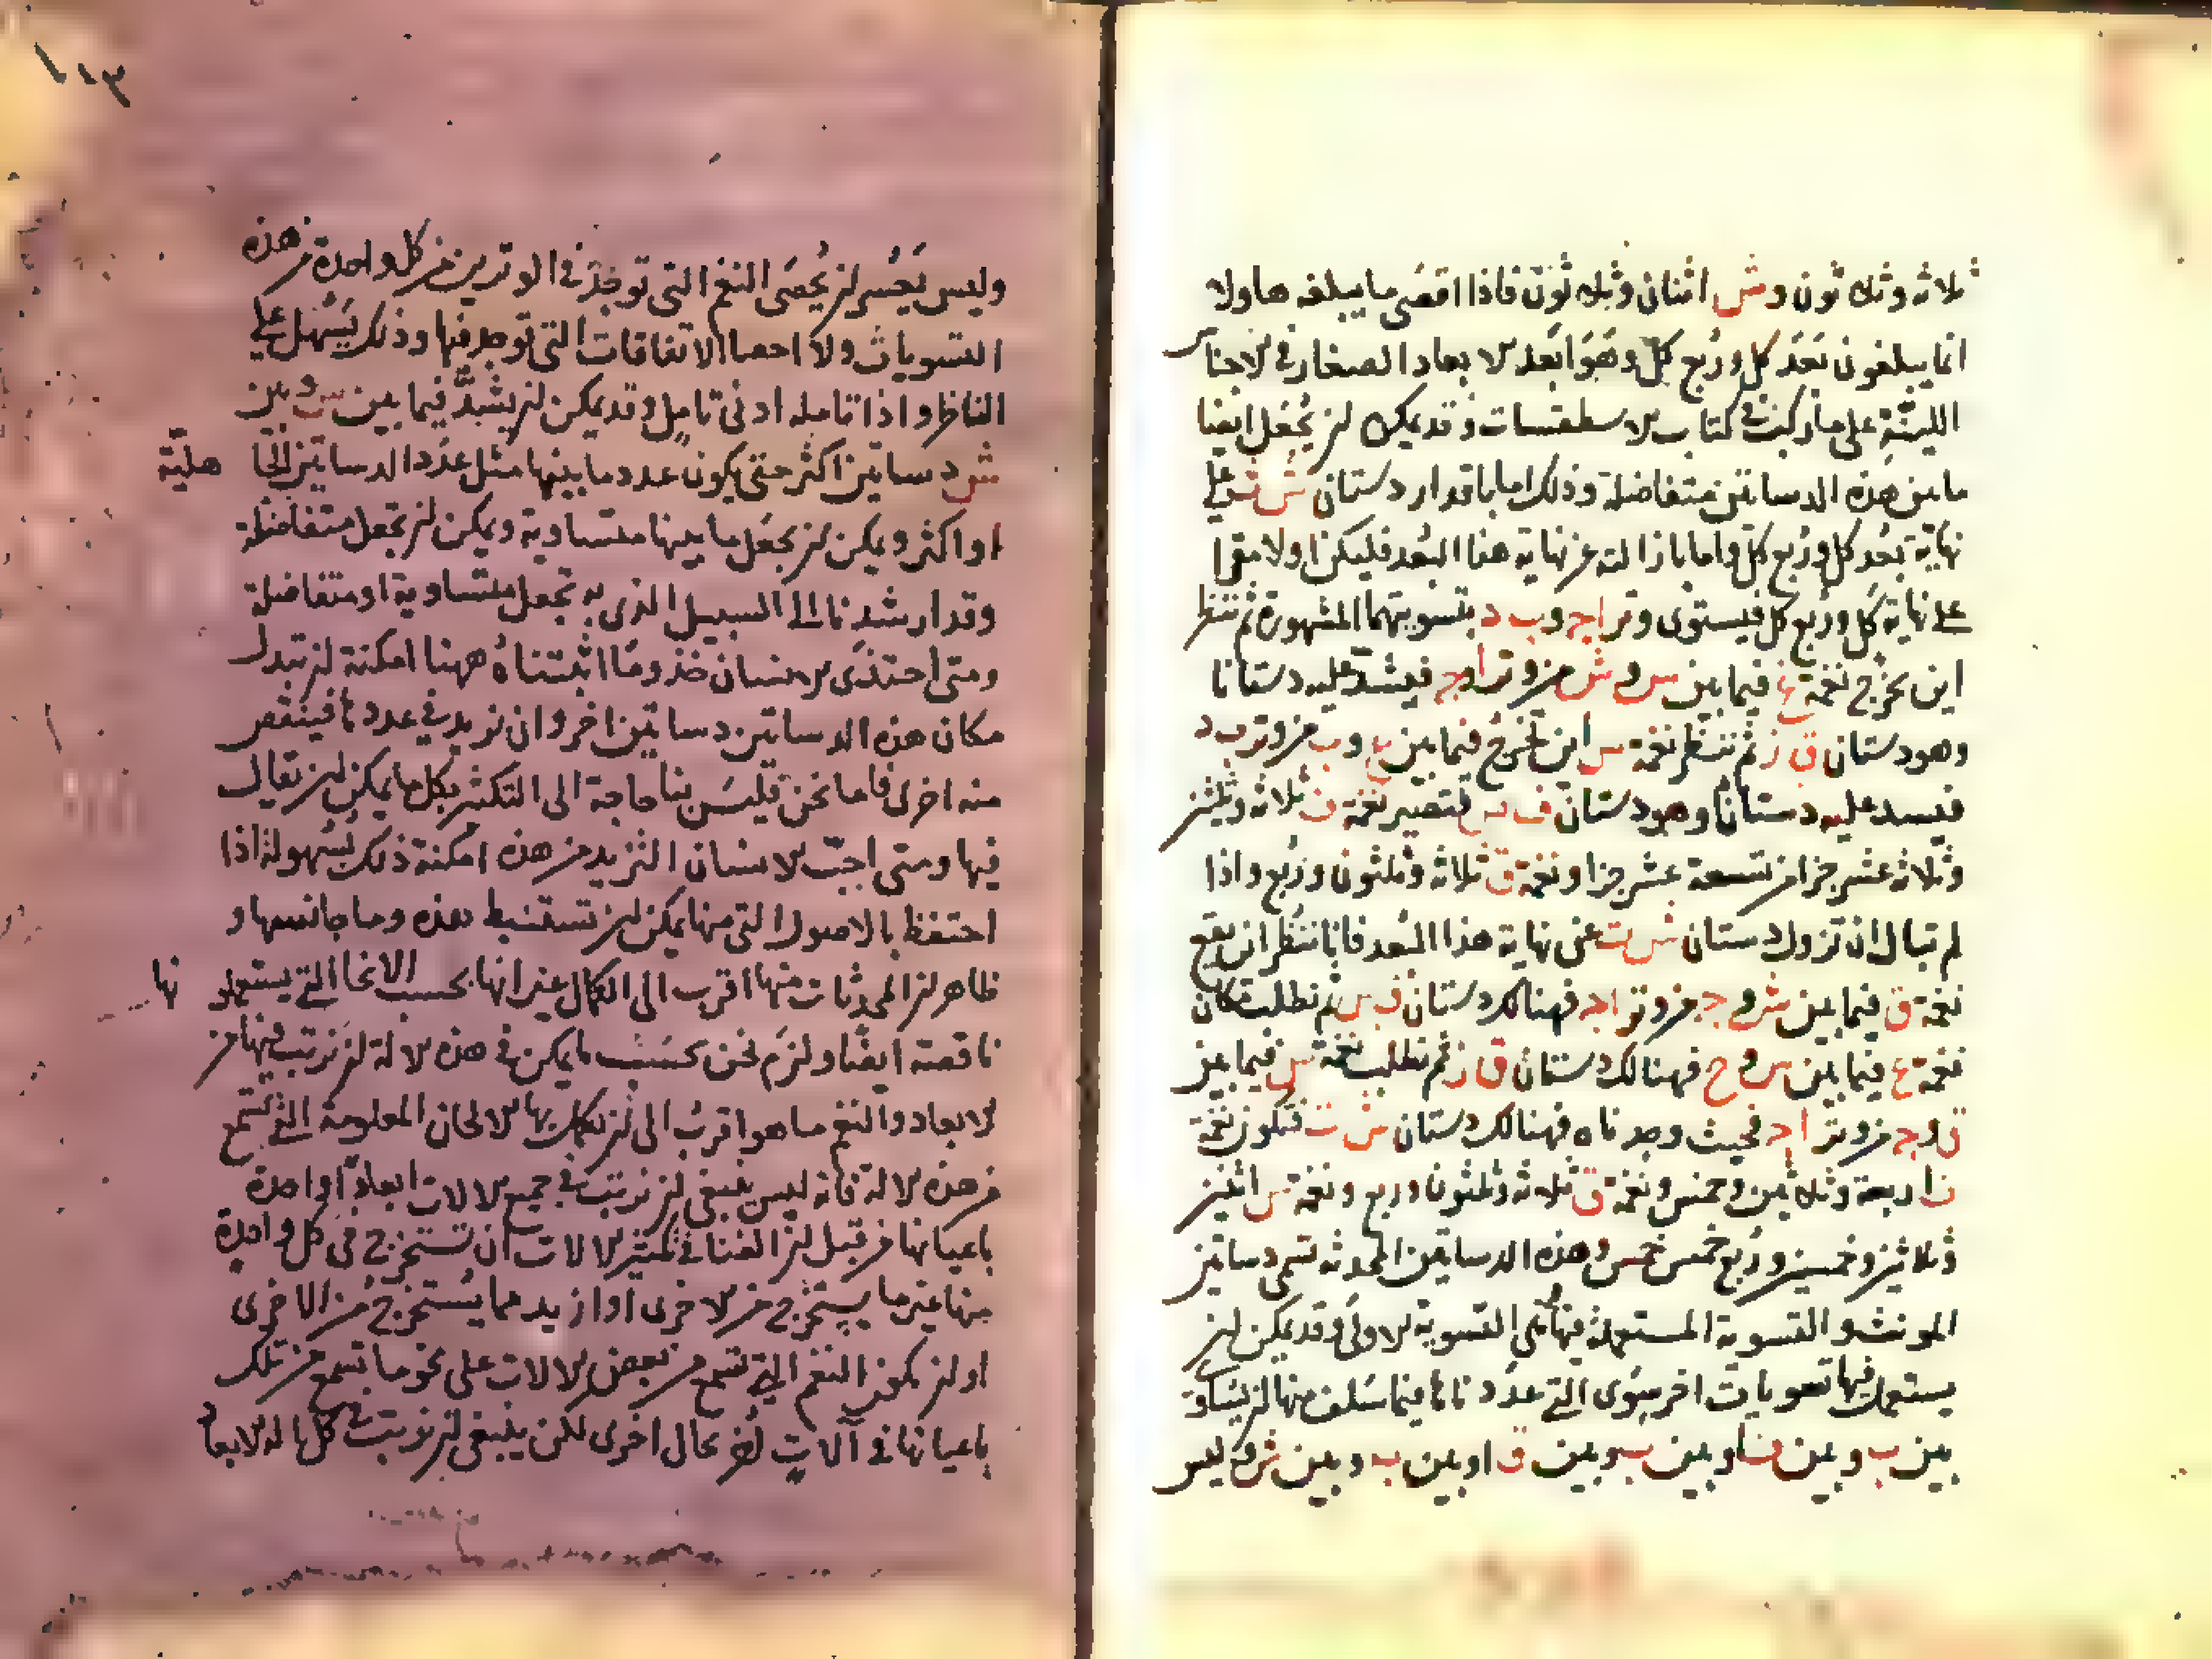 ثلاثه وثلاثون وش اثنان وثلاثون فاذا اقصى ما يبلغه هاولا
انما يبلغون بعد كل وربع كل وهو ابعد الابعاد الصغار في الاجناس
اللينة على ما ركبت في كتاب الاسطقسات وقد يمكن ان يجعل ايضا
ما بين هذه الدساتين متفاضلة وذلك اما باقرار دستان ش ت على
نهاية بعد كل وربع كل واما بازالته عن نهاية هذا البعد فليكن اولا مقرا
على نهاية كل وربع كل فيستوى وتر ا ج و ب د بتسويتهما المشهورة ثم ننظر
اين يخرج نغمة ع فيما بين س و ش من وتر ا ج فيشد عليه دستانا
وهو دستان ق ز ثم ننظر نغمة س اين تخرج فيما بين ع و ب من وتر ب د
فيشد عليه دستانا وهو دستان ف س فتصير نغمة ن ثلاثه وثلثين
وثلاثه عشر جزا من تسعة عشر جزا ونغمة ق ثلاثه وثلثون وربع واذا
لم تبال ان تزول دستان ش ت عن نهاية هذا البعد فانا ننظر اين يقع
نغمة ق فيما بين ش و ج من وتر ا ج فهنالك دستان ف س ثم نطلب مكان
نغمة ع فيما بين س و ح فهنالك دستان ق ز ثم نطلب نغمة س فيما بين
ن و ج من وتر ا ج فحيث وجدناه فهنالك دستان ش ت فتكون نغمة
ن اربعة وثلاثين وخمس ونغمة ق ثلاثه وثلثون وربع ونغمة س اثنين
وثلاثين وخمسين وربع خمس خمس وهذه الدساتين المحدثه تسمى دساتين
المونث والتسوية المستعملة فيها هى التسوية الاولى وقد يمكن ان
يستعمل فيها تسويات اخر سوى التي عددناها فيما سلف منها ان يساوى
بين ب وبين ن او بين ب وبين ق او بين ب وبين ش و ليس
وليس يعسر ان يحصى النغم التى توجد في الوترين من كل واحدة من هذه
التسويات ولا احصا الاتفاقات التى توجد فيها وذلك يسهل على
الناظر اذا تامله ادنى تامل وقد يمكن ان يشد فيما بين س وبين
ش دساتين اكثر حتى يكون عدد ما بينها مثل عدد الدساتين الجا هلية
او اكثر ويمكن ان يجعل ما بينها متساوية ويمكن ان تجعل متفاضلة
وقد ارشدنا الى السبيل الذى به تجعل متساوية او متفاضلة
ومتى احتذى الانسان حذو ما اثبتناه ههنا امكنه ان تبدل
مكان هذه الدساتين دساتين اخر وان نزيد في عددها فينقص
منه اخرى فاما نحن فليس بنا حاجة الى التكثير بكل ما يمكن ان يقال
فيها ومتى احب الانسان التزيد من هذه امكنه ذلك بسهولة اذا
احتفظ بالاصول التى منها يمكن ان تستنبط هذه وما جانسها و
ظاهر ان المحدثات منها اقرب الى الكمال غير انها بحسب الانحا التي يستعملو نها
ناقصة ايضا ولنرم نحن بحسب ما يمكن في هذه الالة ان نرتب فيها من
الابعاد والنغم ما هو اقرب الى ان تكمل بها الالحان المعلومة التي تستمع
من هذه الالة فانه ليس ينبغى ان نرتب في جميع الالات ابعاد واحدة
باعيانها من قبل ان الغنا في كثير الالات ان تستخرج في كل واحدة
منها غير ما يستخرج من الاخرى او ازيد مما يستخرج من الاخرى
او ان تكون النغم التي تسمع من بعض الالات على نحو ما تسمع من تلك
باعيانها في آلات اخر بحال اخرى لكن ينبغى ان نرتب في كل الة الابعاد